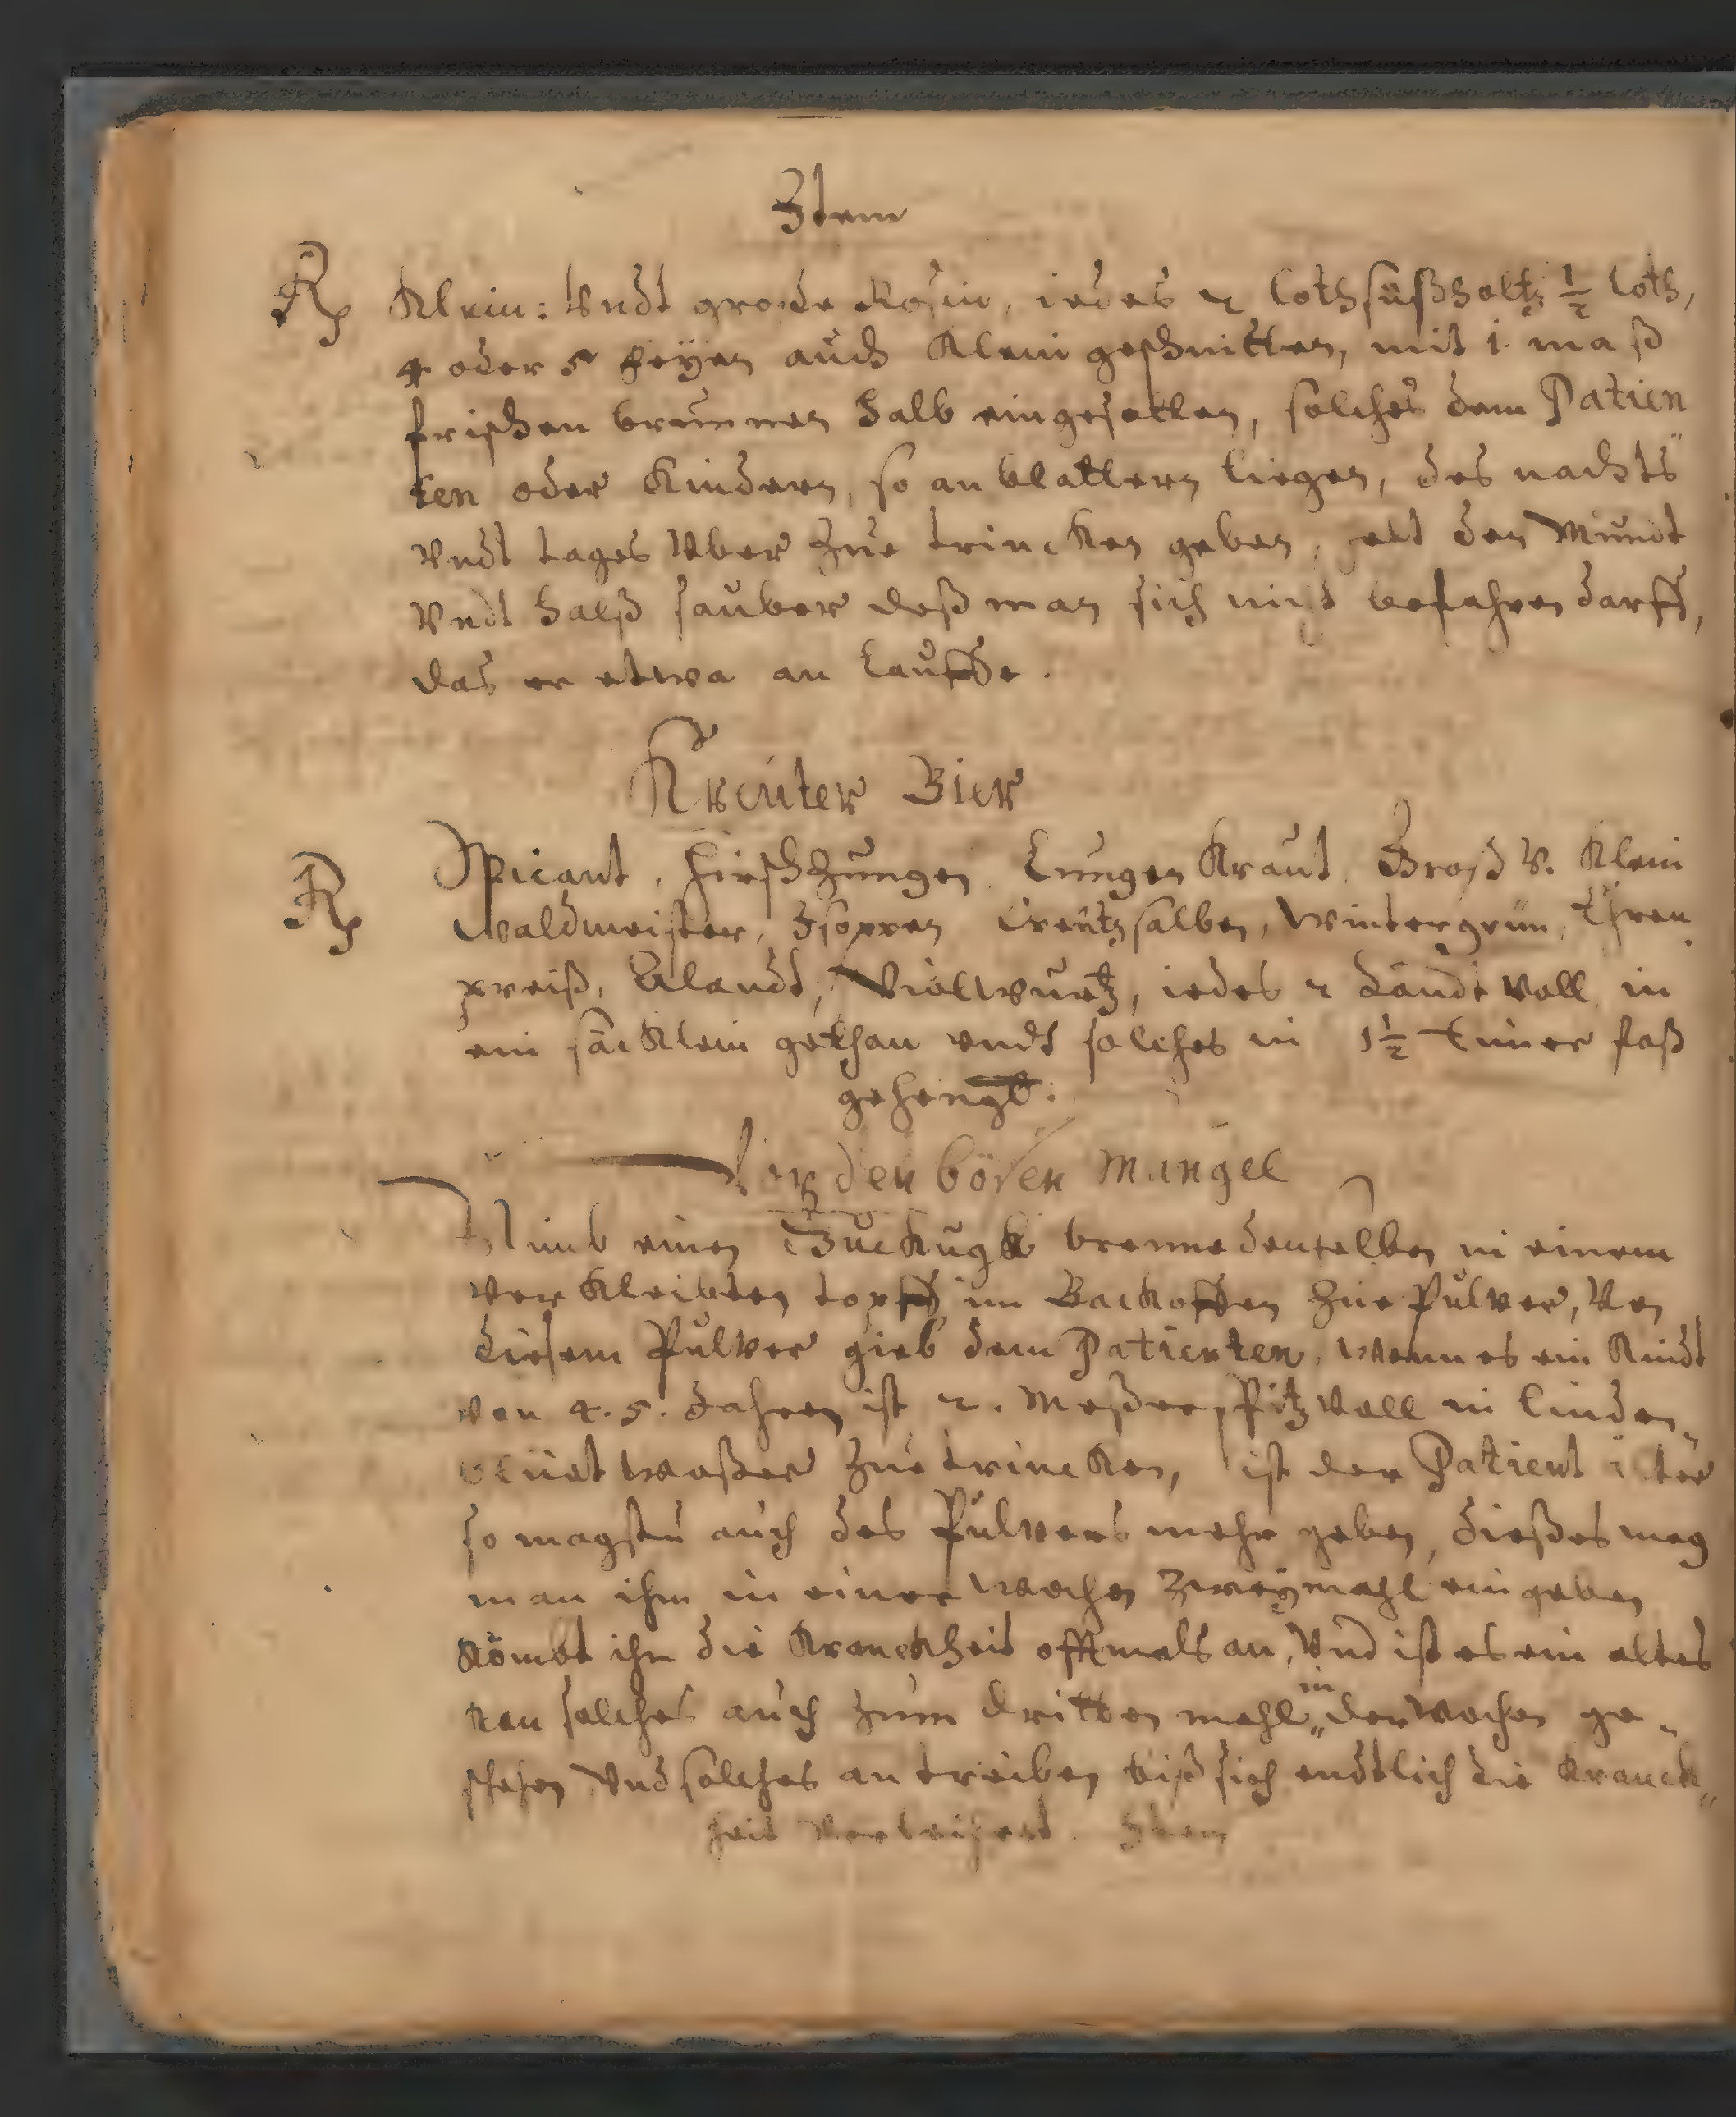 Item
Rp Klein: Vndt große Rosin, iedes 2 loth süßholtz ½ loth,
4 oder 5 feygen auch Klein geschnitten, mit 1. maß
frischen brunnen halb eingesotten, solches dem Patien
ten oder Kindern, so an blattern liegen, des nachts
Vndt tages Vber zue trincken geben, helt den Mundt
Vndt halß sauber deß man sich nicht befahren darff,
das er etwa an lauffe.
Kreüter Bier
Rp Spicant, hirschzungen, Lungen Kraut, Groß V. Klein
Waldmeister, Isoppen Creützsalben, Wintergrün, Ehren
preiß, Alandt, Violwurtz, iedes 2 handt Voll in
ein säcklein gethan vndt solches in 1½ Eimer faß
gehengt:
Vor den bösen Mangel
Nimb einen Guckugk brenne denselben in einem
Verkleibten topff im Backoffen zue Pulver, Von
diesem Pulver gieb dem Patienten, wenn es ein Kindt
von 4. 5. Jahren ist 2. Meßerspitz Voll in linden
blüet waßer zue trincken, ist der Patient älter
so magstu auch des Pulvers mehr geben, dießes mag
man ihm in einer wochen zweymahl eingeben
Kömbt ihn die Kranckheit offtmals an, Vnd ist es ein altes
kan solches auch zum dritten mahl in der Wochen ge„
schehen Vnd solches an treiben biß sich endtlich die Kranck„
heit Item